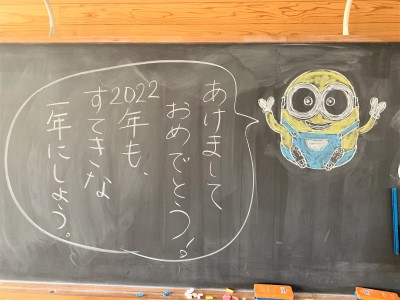 あけまして
おめでとう!
2022
年も、
すてきな
一年にしよう。